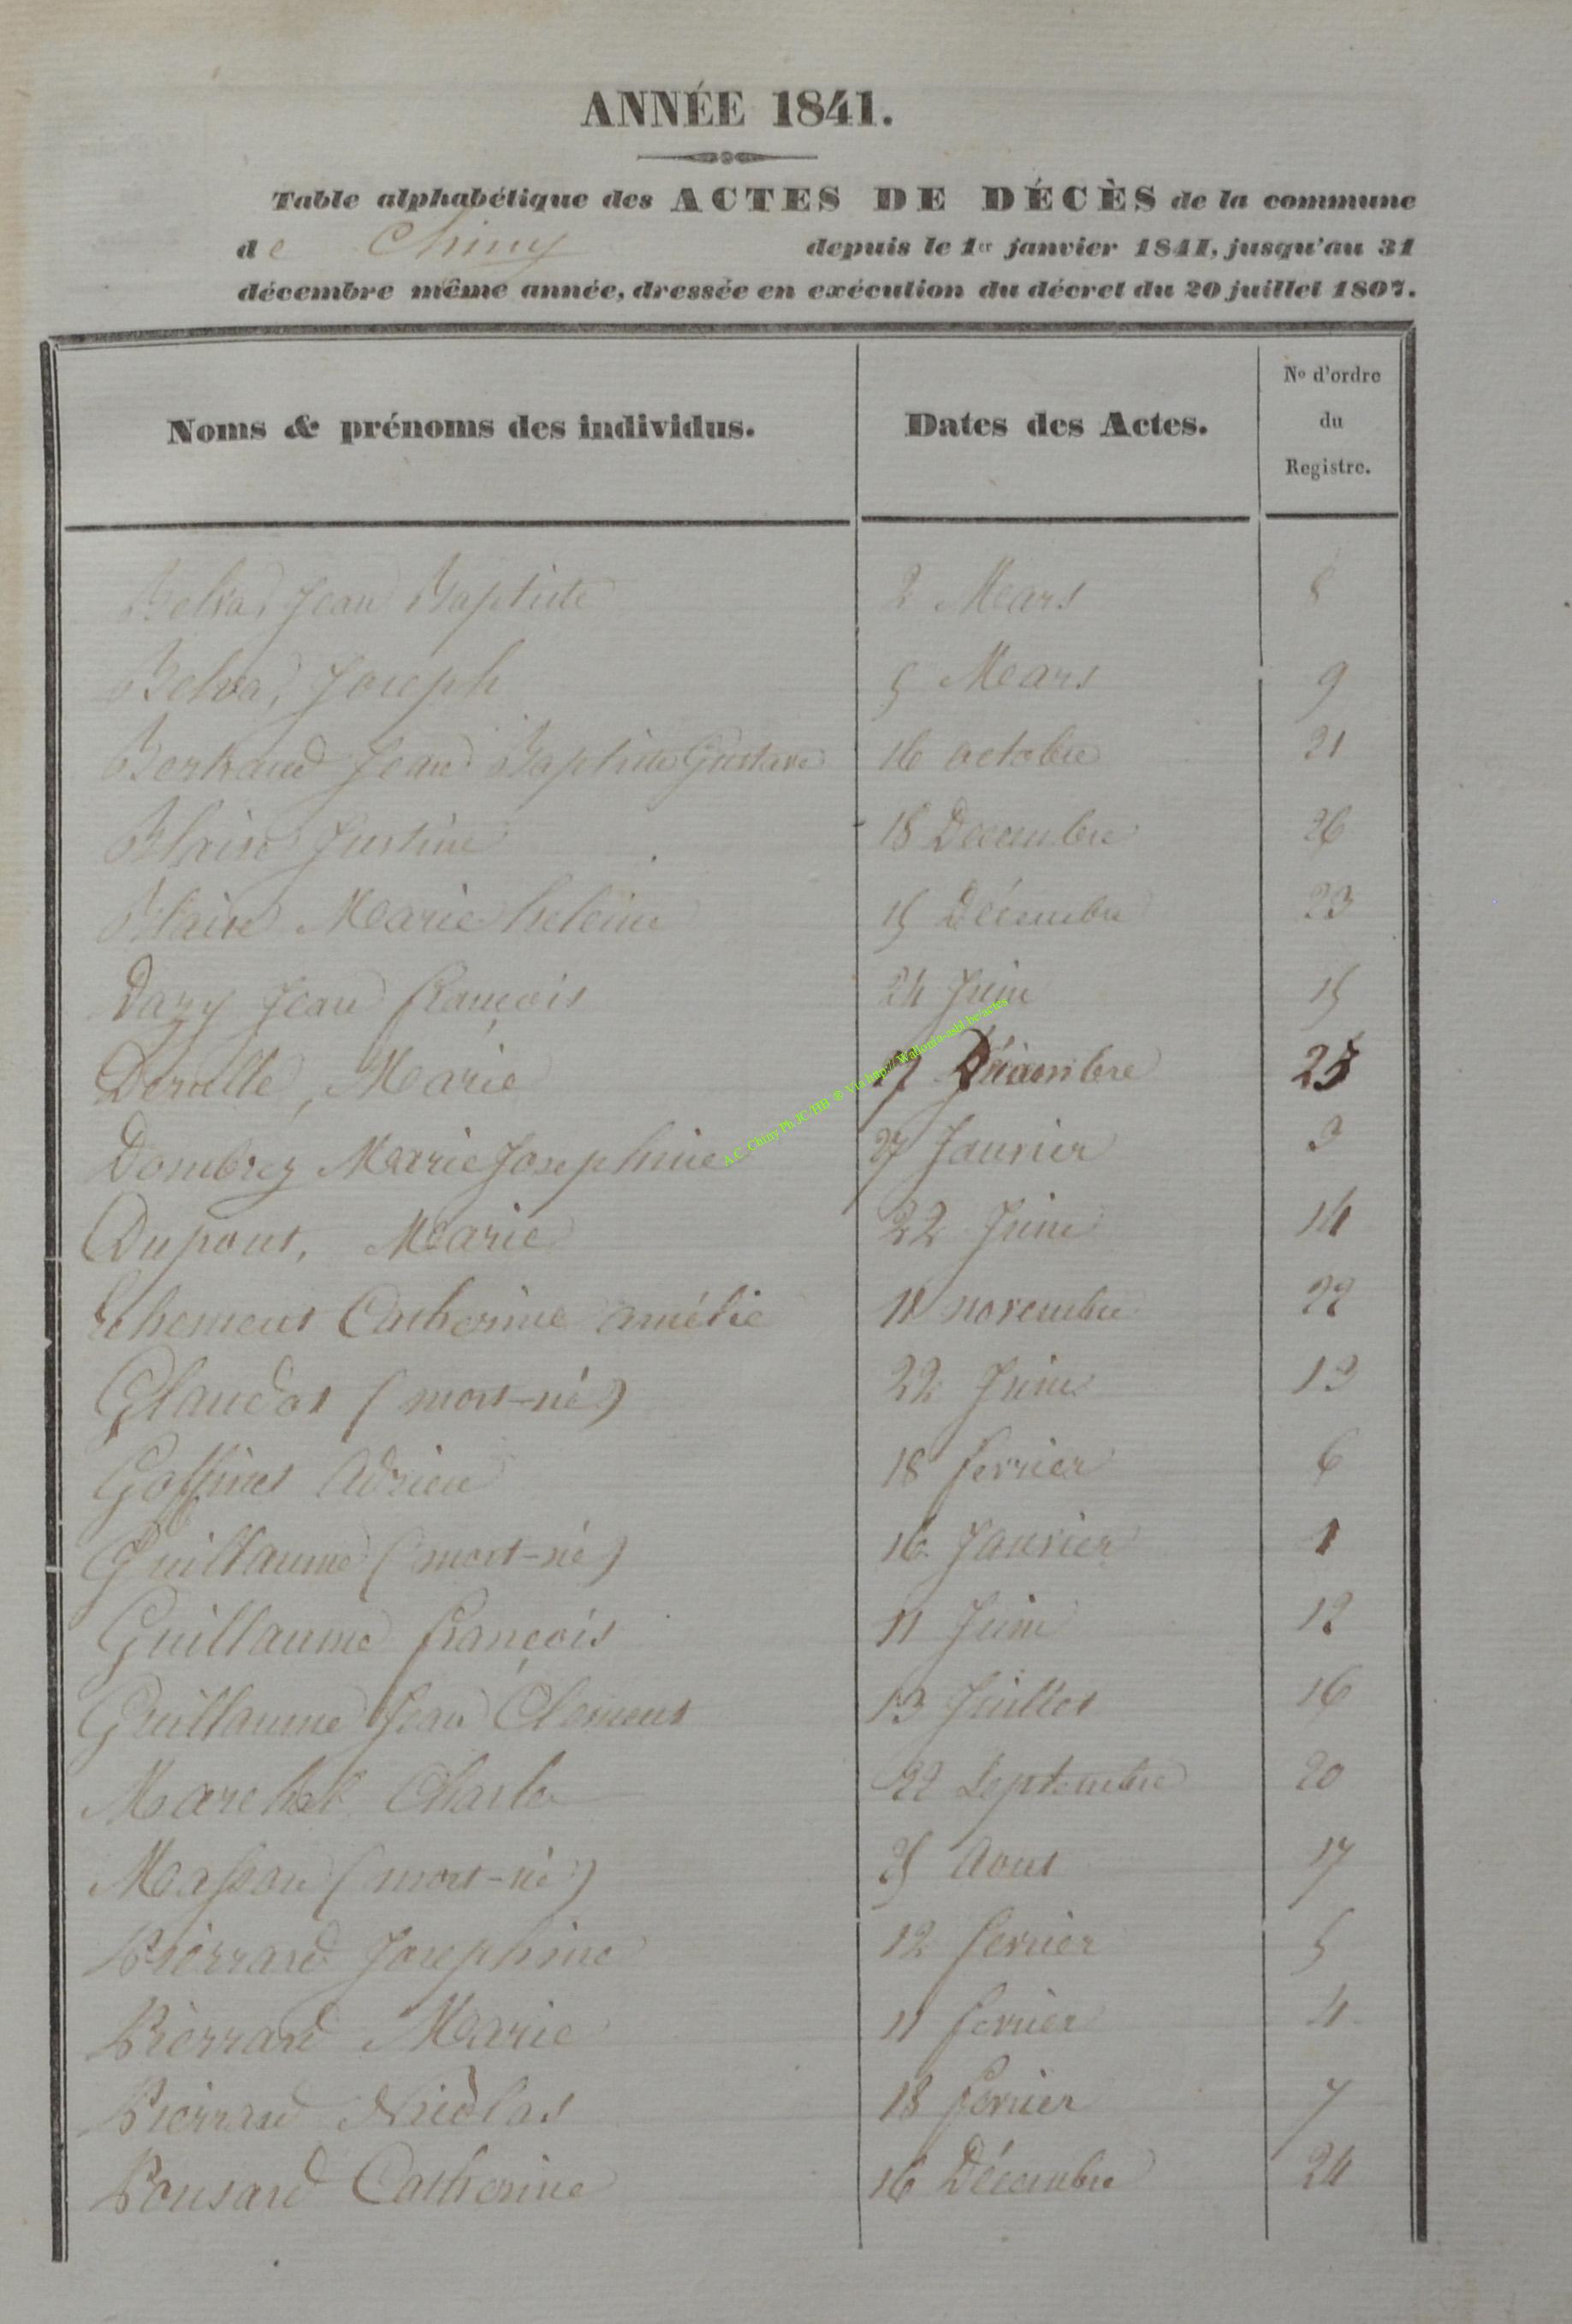 ANNÉE 1841.
Table alphabétique des ACTES DE DÉCÈS de la commune
de Chiny depuis le 1er janvier 1841, jusqu'au 31
décembre même année, dressée en exécution du décret du 20 juillet 1807.
Noms & prénoms des individus. Dates des Actes. No d'ordre du Registre.
Belva, Jean Baptiste 2 Mars 8
Belva, Joseph 5 Mars 9
Bertrand Jean Baptiste Gustave 16 octobre 21
Blaise Justine 18 Decembre 26
Blaise Marie heleine 15 Décembre 23
Dazy Jean francois 24 Juin 15
Marie 17 Décembre 25
Dombrez Marie Josephine 27 Janvier 3
Dupont, Marie 22 Juin 14
Catherine amélie 11 novembre 22
Glaudot (mort-né) 22 Juin 13
Goffinet Adrien 18 fevrier 6
Guillaume (mort-né) 16 Janvier 1
Guillaume françois 11 Juin 12
Guillaume Jean Clement 13 Juillet 16
Charles 22 Septembre 20
Masson (mort-né) 25 Aout 17
Pierrard Josephine 12 fevrier 5
Pierrard Marie 11 fevrier 4
Pierrard Nicolas 18 fevrier 7
Ponsard Catherine 16 Décembre 24
A.C. Chiny Ph JC/HB ® Via http://Wallonia-asbl.be/actes